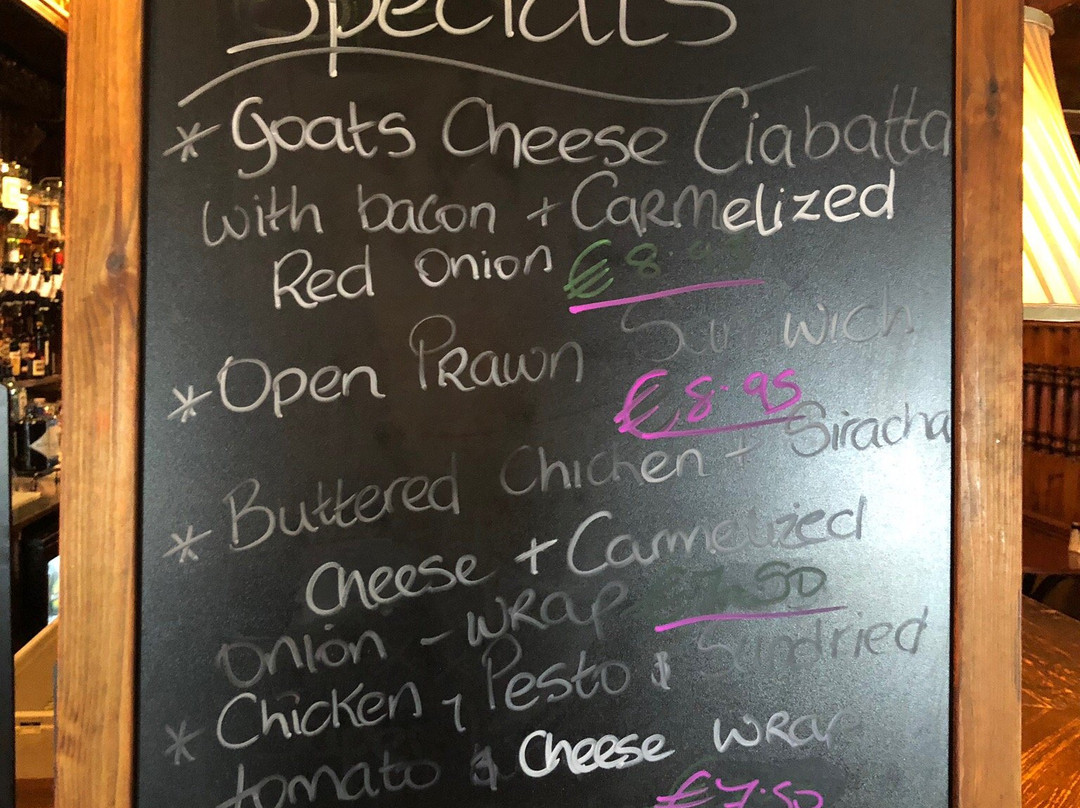 Specials
* Goats Cheese Ciabatta
with bacon + Carmelized
Red Onion €8.
* Open Prawn wich
€8.95
* Buttered Chicken + Siracha
Cheese + Carmelized
Onion - wrap €7.50
* Chicken, Pesto & Sundried
tomato & Cheese wrap
€7.50